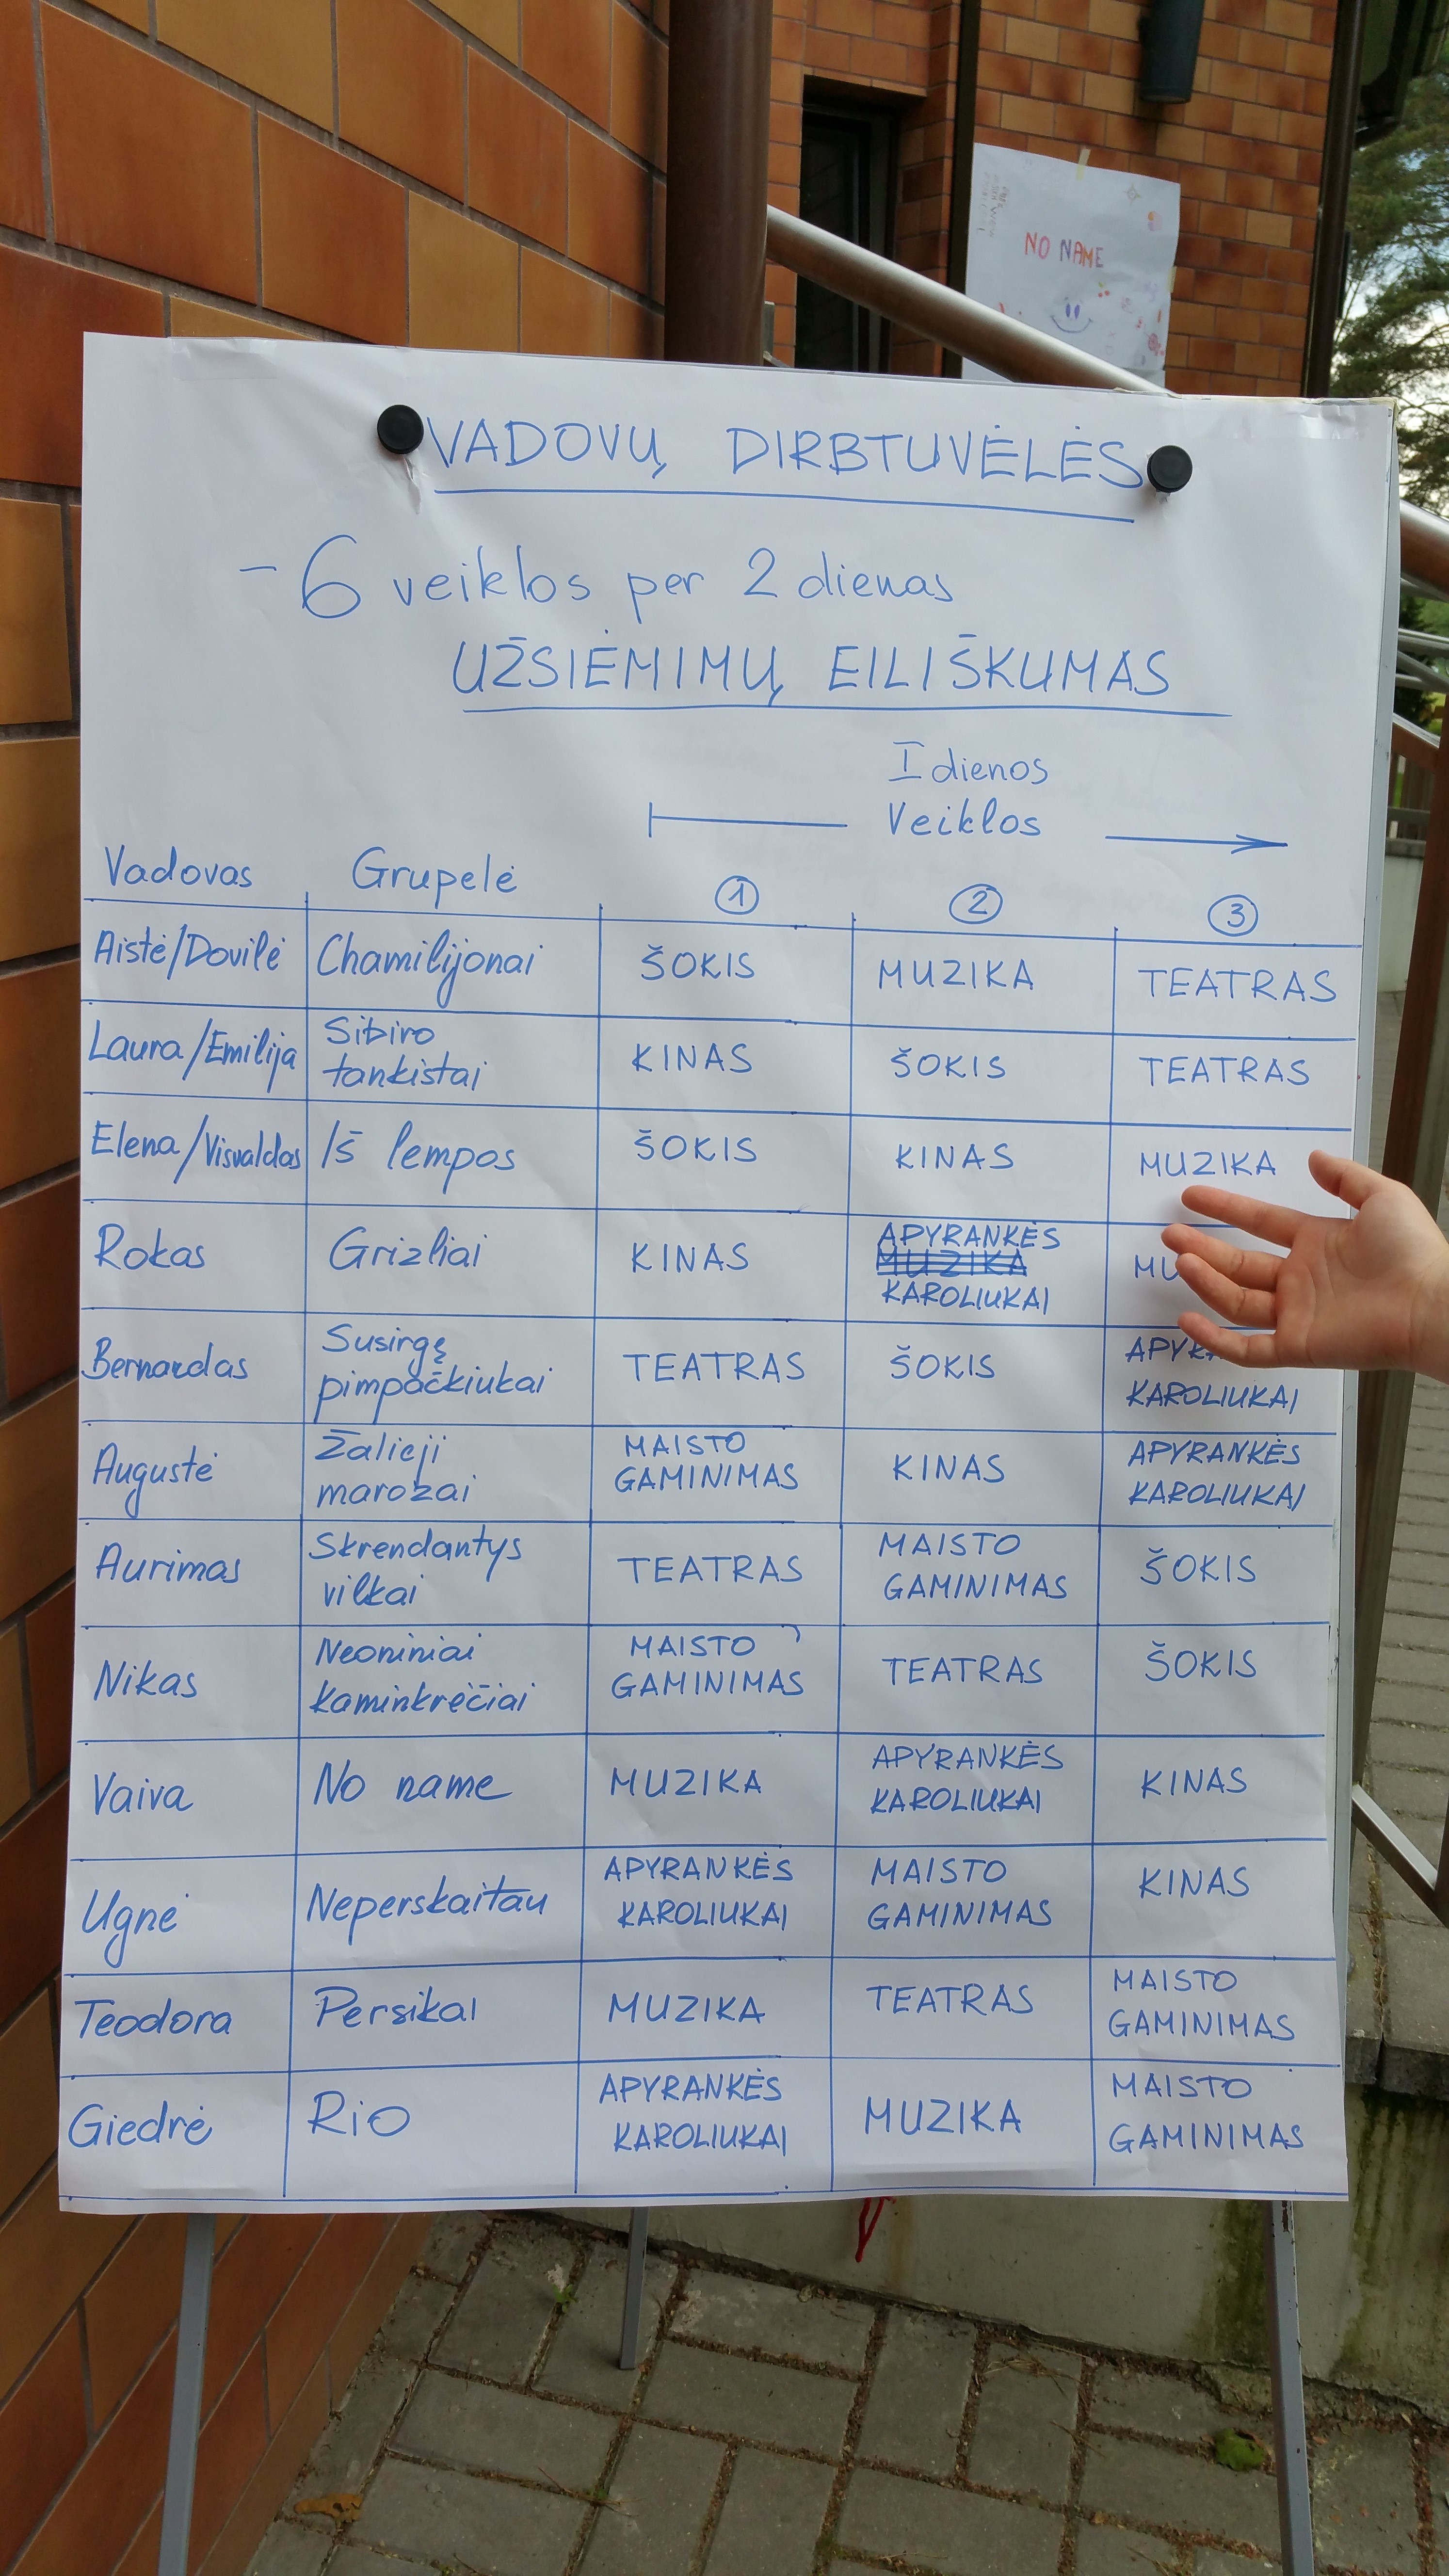 NO NAME
VADOVŲ DIRBTUVĖLĖS
- 6 veiklos per 2 dienas
UŽSIĖMIMŲ EILIŠKUMAS
I dienos
Veiklos
Vadovas Grupelė 1 2 3
Aistė/Dovilė Chamilijonai ŠOKIS MUZIKA TEATRAS
Laura/Emilija Sibiro tankistai KINAS ŠOKIS TEATRAS
Elena/Visvaldas Iš lempos ŠOKIS KINAS MUZIKA
Rokas Grizliai KINAS APYRANKĖS MUZIKA KAROLIUKAI
Bernardas Susirgę pimpačkiukai TEATRAS ŠOKIS KAROLIUKAI
Augustė Žalieji marozai MAISTO GAMINIMAS KINAS APYRANKĖS KAROLIUKAI
Aurimas Skrendantys vilkai TEATRAS MAISTO GAMINIMAS ŠOKIS
Nikas Neoniniai kaminkrėčiai MAISTO GAMINIMAS TEATRAS ŠOKIS
Vaiva No name MUZIKA APYRANKĖS KAROLIUKAI KINAS
Ugnė Neperskaitau APYRANKĖS KAROLIUKAI MAISTO GAMINIMAS KINAS
Teodora Persikai MUZIKA TEATRAS MAISTO GAMINIMAS
Giedrė Rio APYRANKĖS KAROLIUKAI MUZIKA MAISTO GAMINIMAS